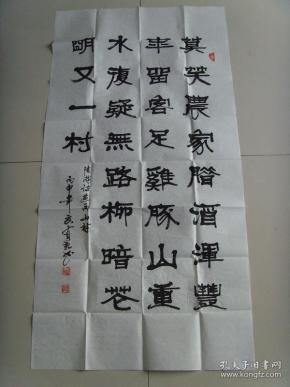 莫笑農家臈酒渾豐
年留客足雞豚山重
水復疑無路柳暗花
明又一村
陸游詩遊西山村
丙申年
孔夫子旧书网